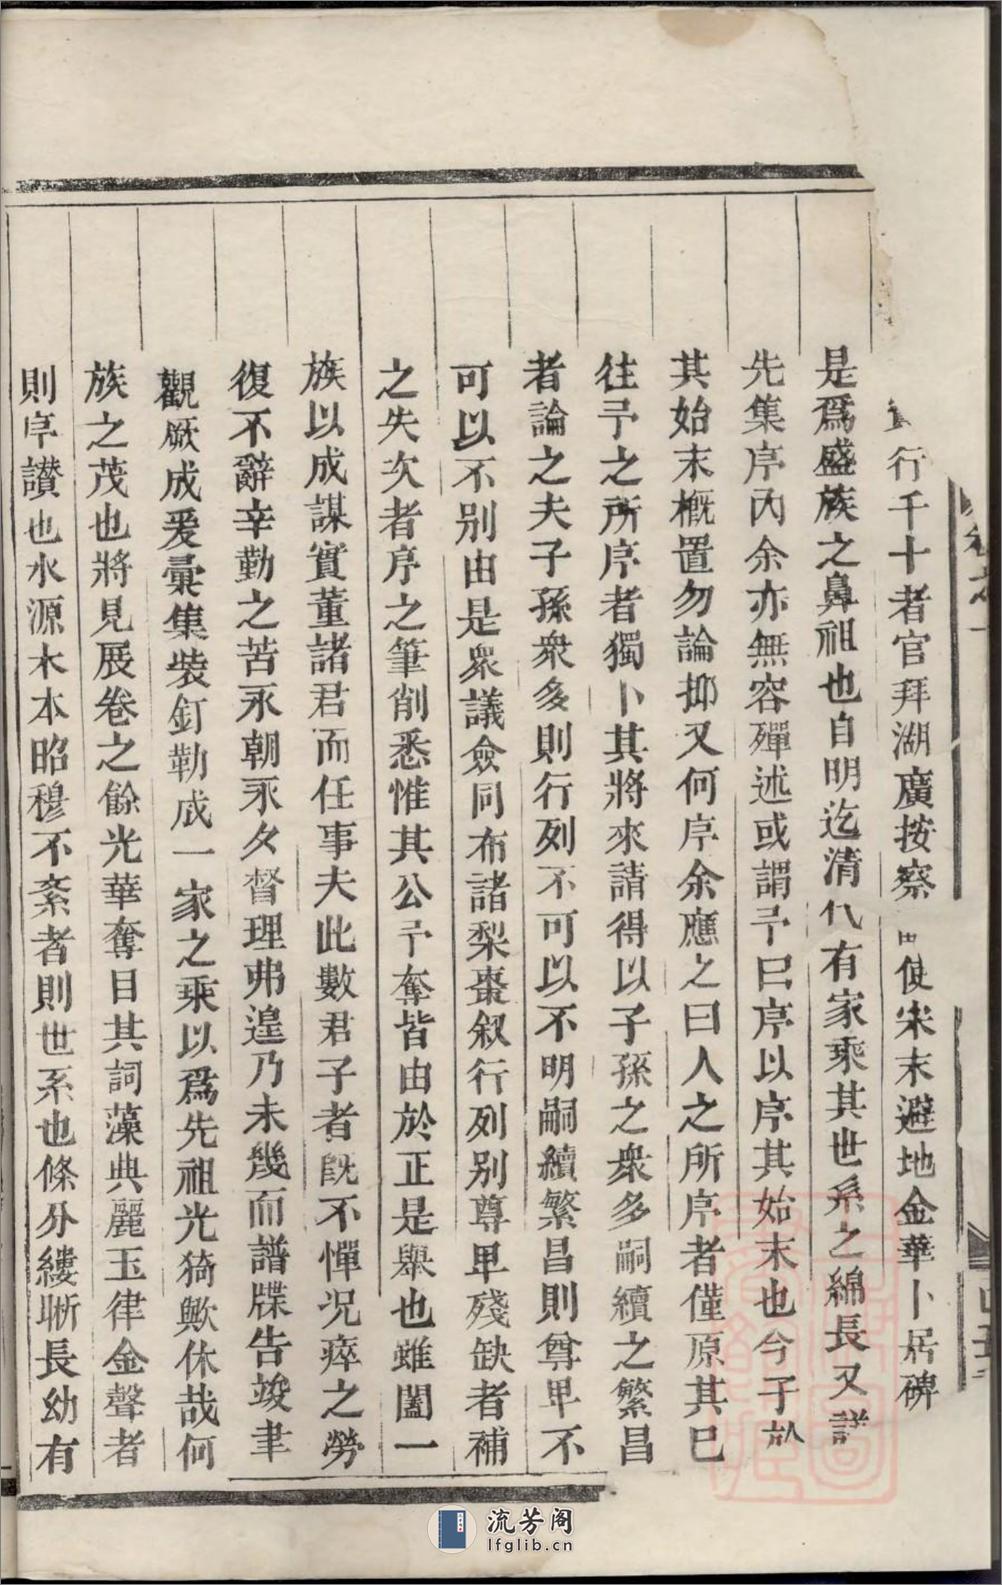 行千十者官拜湖廣按察使宋末避地金華卜居碑
是爲盛族之鼻祖也自明迄清代有家乘其世系之綿長又詳
先集序內余亦無容殫述或謂予曰序以序其始末也今子於
其始末概置勿論抑又何序余應之曰人之所序者僅原其已
往予之所序者獨卜其將來請得以子孫之衆多嗣續之繁昌
者論之夫子孫衆多則行列不可以不明嗣續繁昌則尊卑不
可以不別由是衆議僉同布諸梨棗叙行列別尊卑殘缺者補
之失次者序之筆削悉惟其公予奪皆由於正是舉也雖闔一
族以成謀實董諸君而任事夫此數君子者既不憚況瘁之勞
復不辭辛勤之苦永朝永夕督理弗遑乃未幾而譜牒告竣聿
觀厥成爰彙集裝釘勒成一家之乘以爲先祖光猗歟休哉何
族之茂也將見展卷之餘光華奪目其詞藻典麗玉律金聲者
則序讚也水源木本昭穆不紊者則世系也條分縷晰長幼有
流芳阁
lfglib.cn